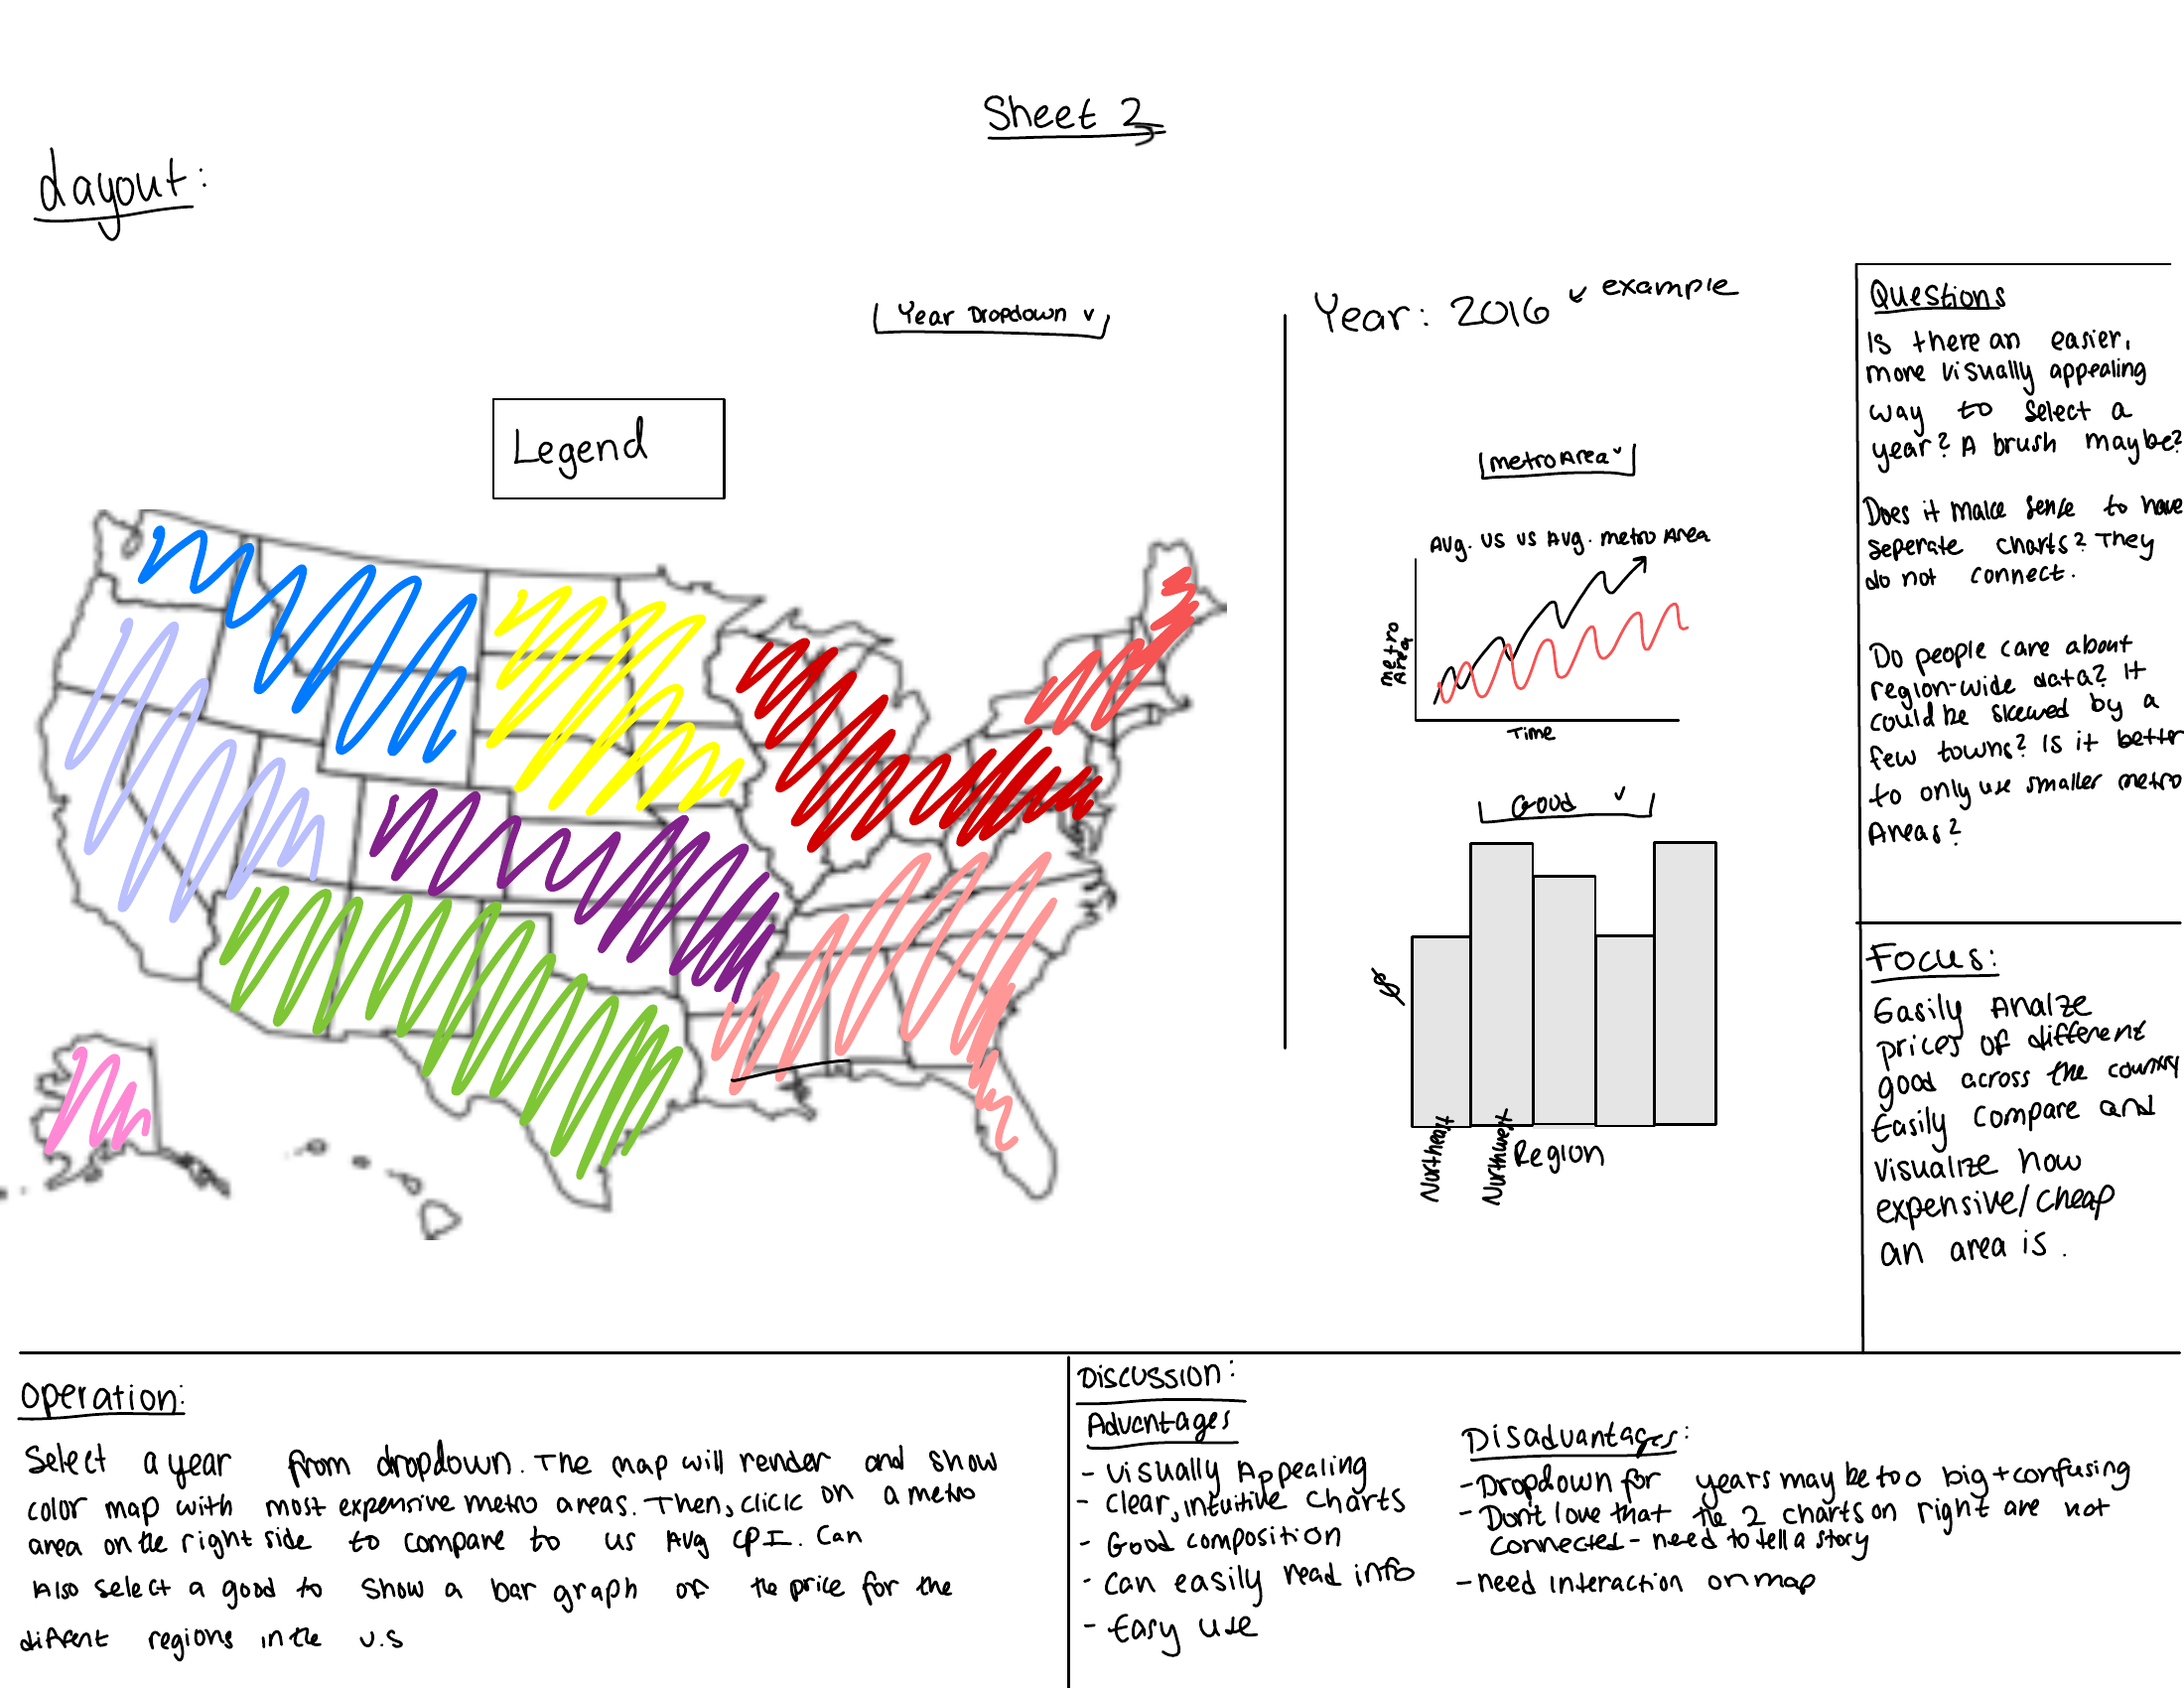 Sheet 2
Layout:
Year Dropdown v
Legend
Year: 2016
example
metro Area v
Avg. US vs Avg. metro Area
metro
Area
Time
Good v
$
Northeast
Northwest
Region
Questions
Is there an easier,
more visually appealing
way to select a
year? A brush maybe?
Does it make sense to have
seperate charts? They
do not connect.
Do people care about
region-wide data? It
could be skewed by a
few towns? Is it better
to only use smaller metro
Areas?
Focus:
Easily Analze
prices of different
good across the country
Easily compare and
visualize how
expensive/cheap
an area is.
Operation:
Select a year from dropdown. The map will render and show
color map with most expensive metro areas. Then, click on a metro
area on the right side to compare to us Avg CPI. Can
Also select a good to show a bar graph of the price for the
diffrent regions in the U.S
Discussion:
Advantages
- Visually Appealing
- clear, intuitive charts
- Good composition
- can easily read info
- Easy use
Disadvantages:
- Dropdown for years may be too big + confusing
- Don't love that the 2 charts on right are not
connected - need to tell a story
- need interaction on map